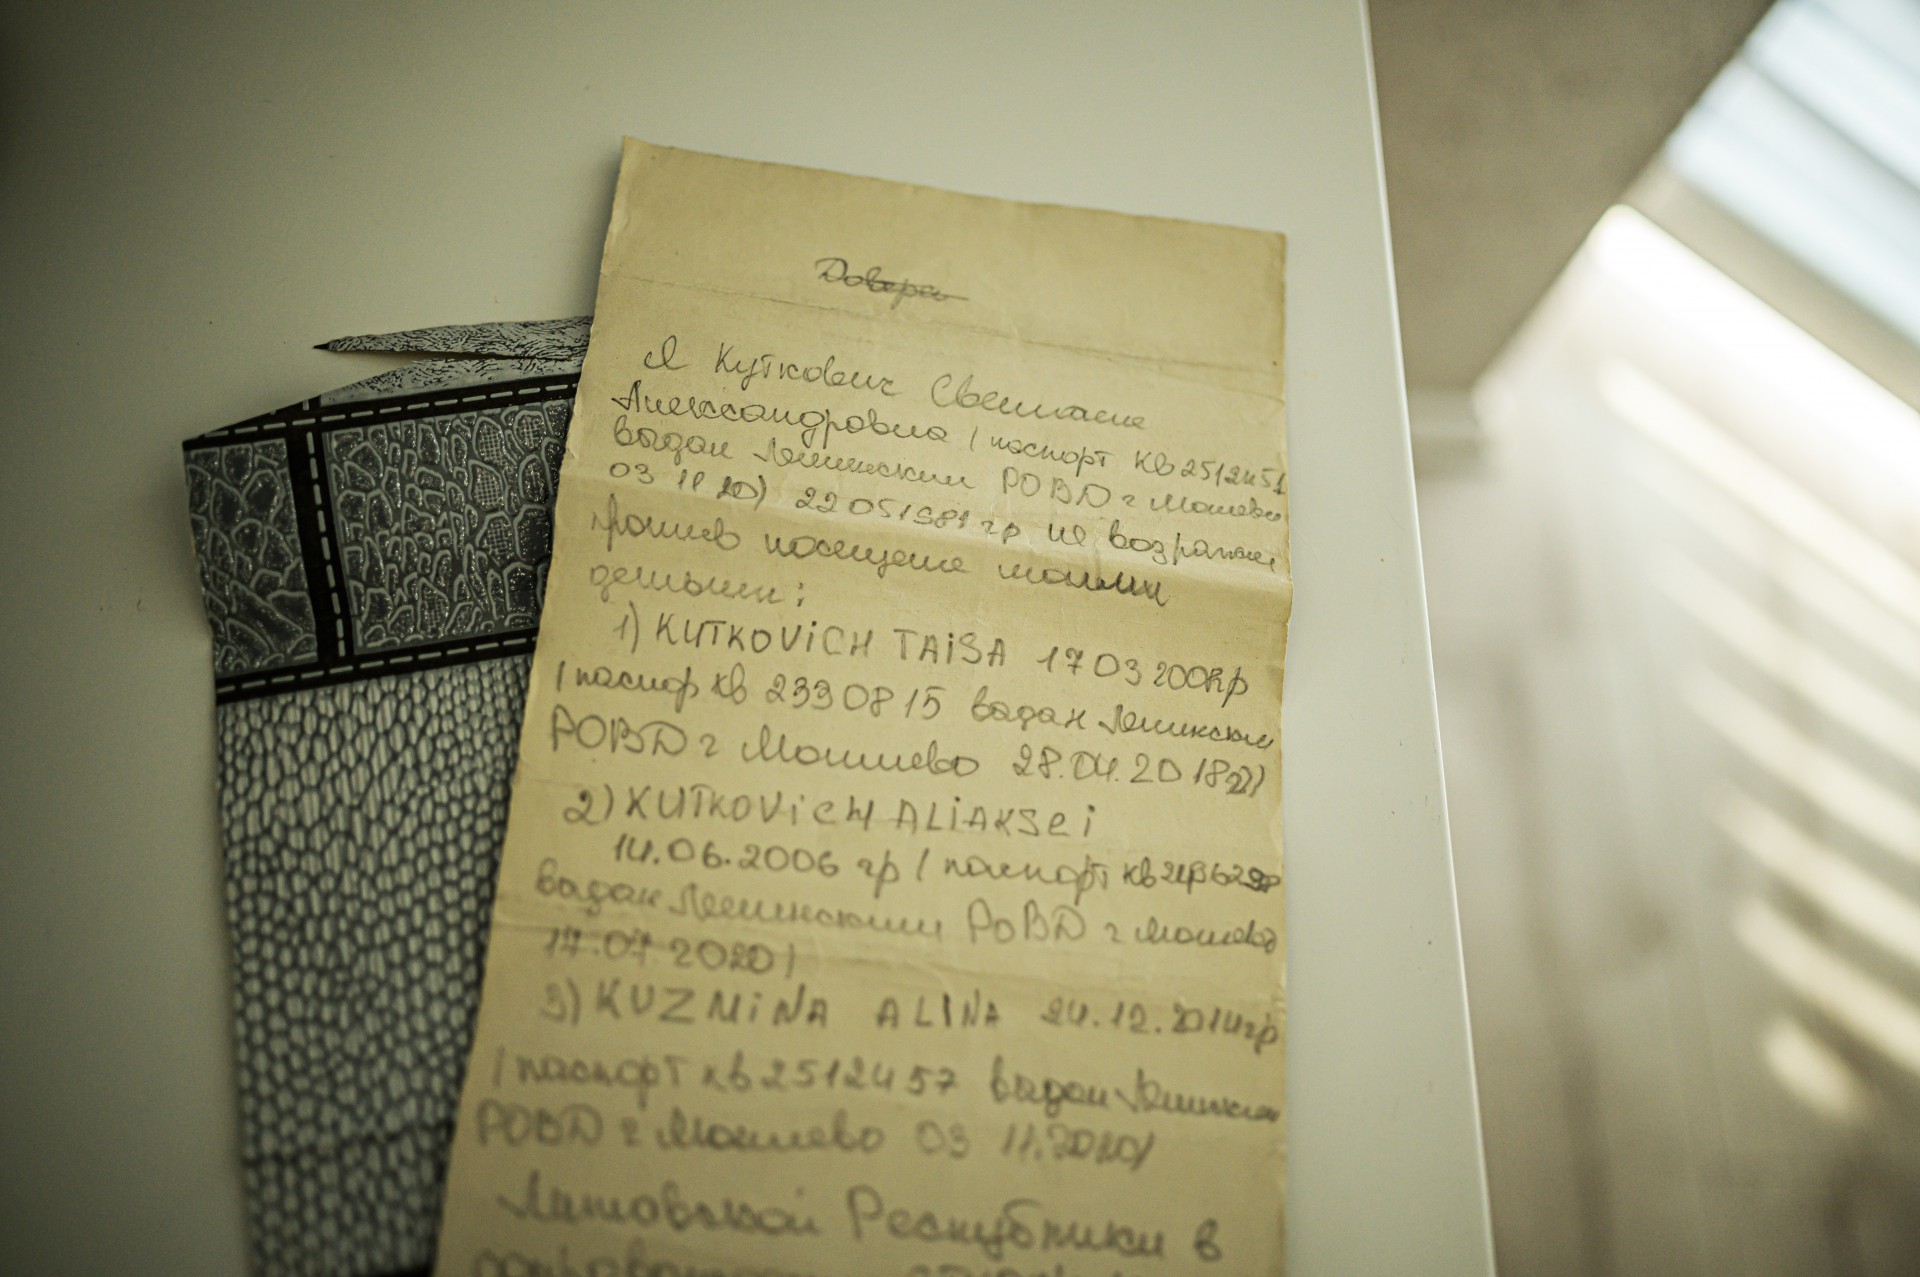 Довере
Я Куткович Светлана
Александровна (паспорт КВ2512451
выдан Ленинским РОВД г Могилева
03 11 20) 22 05 1981 гр не возражаю
против посещение моими
детьми:
1) KUTKOViCH TAiSA 17 03 2002гр
(паспор КВ 2330815 выдан Ленинским
РОВД г Могилево 28.04.2018г))
2) KUTKOViCH ALiAKSEi
14.06.2006 гр (паспорт КВ
выдан Ленинским РОВД г Могилева
17.07.2020)
3) KUZMiNA ALiNA 24.12.2014гр
(паспорт КВ2512457 выдан Ленинским
РОВД г Могилево 03 11.2020)
Литовской Республики в